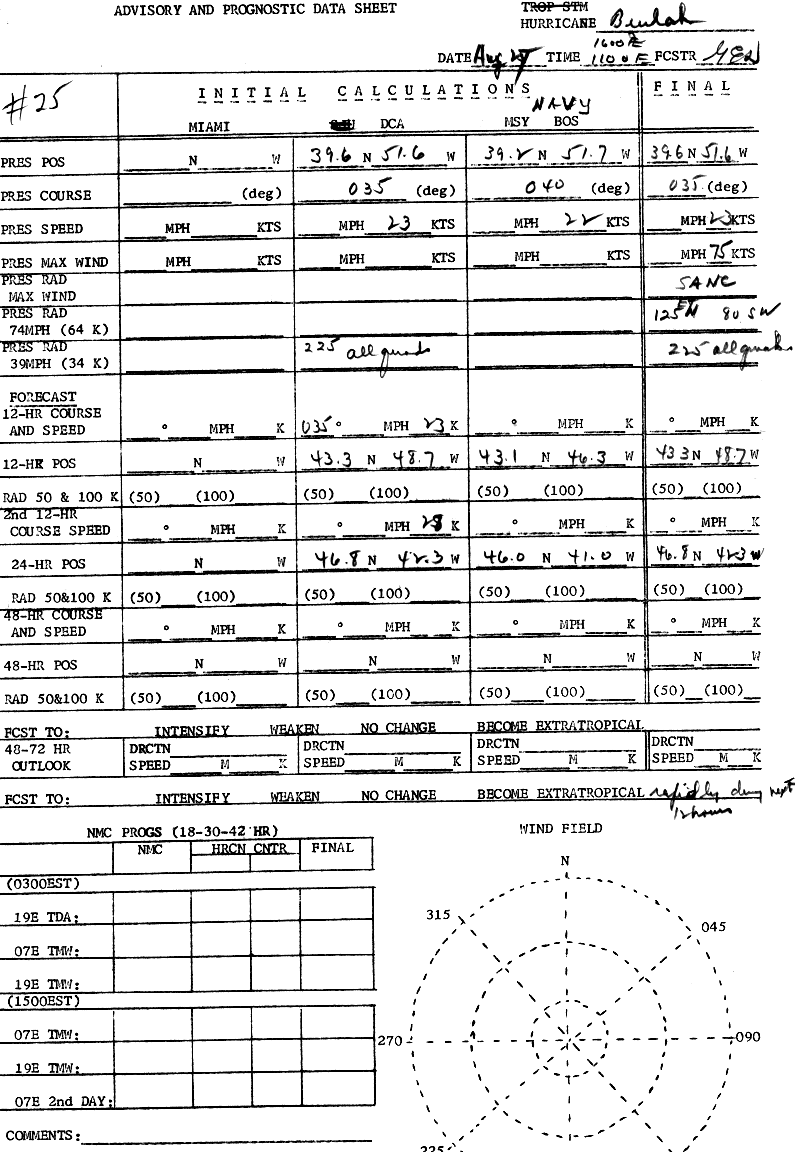 ADVISORY AND PROGNOSTIC DATA SHEET
TROP STM
HURRICANE Beulah
1600Z
DATE Aug 27 TIME 1100E FCSTR
#25
INITIAL CALCULATIONS FINAL
NAVY
MIAMI DCA MSY BOS
PRES POS N W 39.6 N 51.6 W 39.2 N 51.7 W 39.6 N 51.6 W
PRES COURSE (deg) 035 (deg) 040 (deg) 035 (deg)
PRES SPEED MPH KTS MPH 23 KTS MPH 22 KTS MPH 23 KTS
PRES MAX WIND MPH KTS MPH KTS MPH KTS MPH 75 KTS
PRES RAD
MAX WIND SANC
PRES RAD
74MPH (64 K) 125 80 SW
PRES RAD
39MPH (34 K) 225 all quads 225 all quads
FORECAST
12-HR COURSE
AND SPEED ° MPH K 035° MPH 23 K ° MPH K ° MPH K
12-HR POS N W 43.3 N 48.7 W 43.1 N 46.3 W 43.3 N 48.7 W
RAD 50 & 100 K (50) (100) (50) (100) (50) (100) (50) (100)
2nd 12-HR
COURSE SPEED ° MPH K ° MPH 28 K ° MPH K ° MPH K
24-HR POS N W 46.8 N 42.3 W 46.0 N 41.0 W 46.8 N 42.3 W
RAD 50&100 K (50) (100) (50) (100) (50) (100) (50) (100)
48-HR COURSE
AND SPEED ° MPH K ° MPH K ° MPH K ° MPH K
48-HR POS N W N W N W N W
RAD 50&100 K (50) (100) (50) (100) (50) (100) (50) (100)
FCST TO: INTENSIFY WEAKEN NO CHANGE BECOME EXTRATROPICAL
48-72 HR DRCTN DRCTN DRCTN DRCTN
OUTLOOK SPEED M K SPEED M K SPEED M K SPEED M K
FCST TO: INTENSIFY WEAKEN NO CHANGE BECOME EXTRATROPICAL rapidly during next
12 hours
NMC PROGS (18-30-42 HR) WIND FIELD
NMC HRCN CNTR FINAL
N
(0300EST)
315 045
19E TDA:
07E TMW:
19E TMW:
(1500EST)
07E TMW:
270 090
19E TMW:
07E 2nd DAY:
COMMENTS:
225